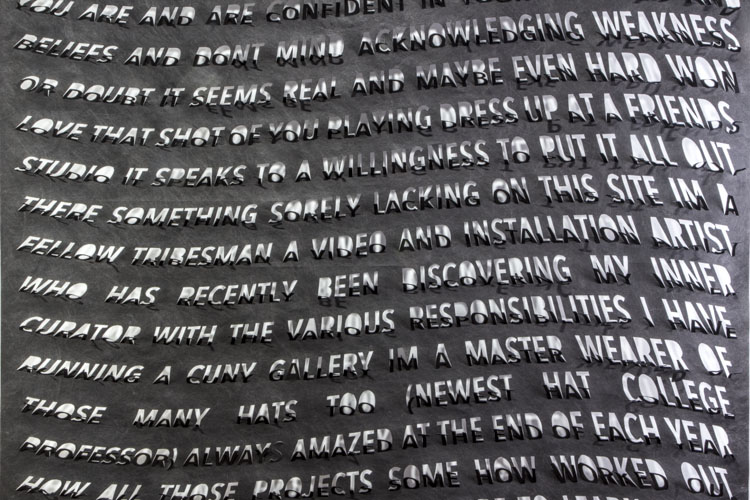 YOU ARE AND ARE CONFIDENT IN
BELIEFS AND DONT MIND ACKNOWLEDGING WEAKNESS
OR DOUBT IT SEEMS REAL AND MAYBE EVEN HARD WON
LOVE THAT SHOT OF YOU PLAYING DRESS UP AT A FRIENDS
STUDIO IT SPEAKS TO A WILLINGNESS TO PUT IT ALL OUT
THERE SOMETHING SORELY LACKING ON THIS SITE IM A
FELLOW TRIBESMAN A VIDEO AND INSTALLATION ARTIST
WHO HAS RECENTLY BEEN DISCOVERING MY INNER
CURATOR WITH THE VARIOUS RESPONSIBILITIES I HAVE
RUNNING A CUNY GALLERY IM A MASTER WEARER OF
THOSE MANY HATS TOO (NEWEST HAT COLLEGE
PROFESSOR) ALWAYS AMAZED AT THE END OF EACH YEAR
HOW ALL THOSE PROJECTS SOME HOW WORKED OUT